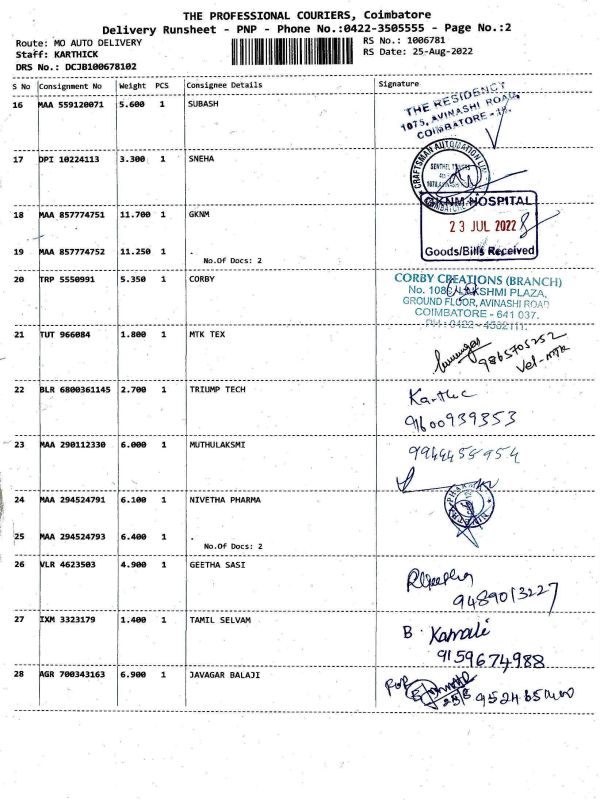 THE PROFESSIONAL COURIERS, Coimbatore
Delivery Runsheet - PNP - Phone No.:0422-3505555 - Page No.:2
Route: MO AUTO DELIVERY
RS No.: 1006781
Staff: KARTHICK
RS Date: 25-Aug-2022
DRS No.: DCJB100678102
S No Consignment No Weight PCS Consignee Details Signature
16 MAA 559120071 5.600 1 SUBASH
THE RESIDENCY
1075, AVINASHI ROAD,
COIMBATORE - 18.
17 DPI 10224113 3.300 1 SNEHA
CRAFTSMAN AUTOMATION
18 MAA 857774751 11.700 1 GKNM
GKNM HOSPITAL
23 JUL 2022
Goods/Bills Received
19 MAA 857774752 11.250 1 .
No.Of Docs: 2
20 TRP 5550991 5.350 1 CORBY
CORBY CREATIONS (BRANCH)
GROUND FLOOR, AVINASHI ROAD
COIMBATORE - 641 037.
21 TUT 966084 1.800 1 MTK TEX
9865705252
Vel-MTK
22 BLR 6800361145 2.700 1 TRIUMP TECH
Karthic
9600939353
23 MAA 290112330 6.000 1 MUTHULAKSMI
24 MAA 294524791 6.100 1 NIVETHA PHARMA
25 MAA 294524793 6.400 1 .
No.Of Docs: 2
26 VLR 4623503 4.900 1 GEETHA SASI
9489013227
27 IXM 3323179 1.400 1 TAMIL SELVAM
B. Kamali
9159674988
28 AGR 700343163 6.900 1 JAVAGAR BALAJI